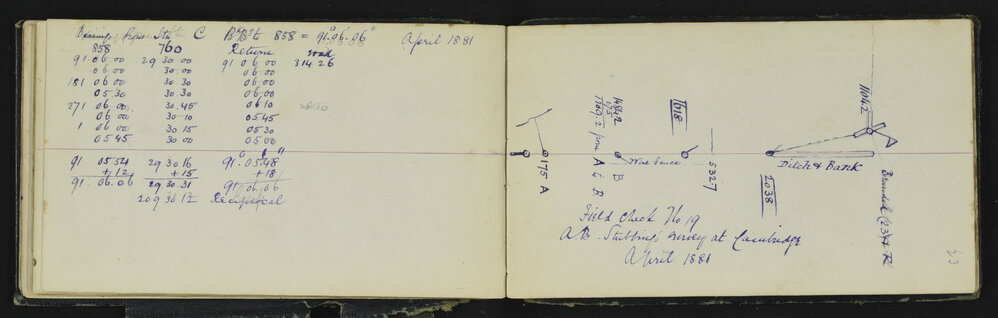 Bearings from Stn C Bk Bk 858 = 91° 06' 06" April 1881
858 760 Return
91 06 00 29 30 00 91 06 00 314.26
06 00 30 00 06 00
181 06 00 30 30 06 00
05 30 30 30 06 00
271 06 00 30.45 06 10
06 00 30 10 05 45
1 06 00 30 15 05 30
05 45 30 00 05 00
91 05 54 29 30 16 91° 05 48"
+12 +15 +18
91. 06. 06 29 30 31 91 06. 06
209 30 12 Reciprocal
175 A
from A & B
B
Wire Fence
1618
5327
2038
Ditch & Bank
11042
A
Field Check No 19
A B. Stubbing's survey at Cambridge
April 1881